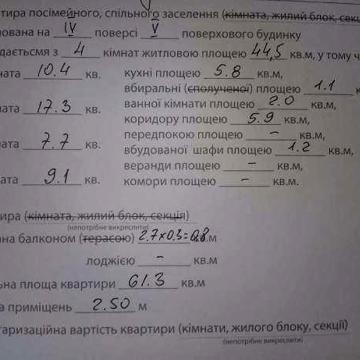 тира посімейного, спільного заселення (кімната, жилий блок, секц
ована на IV поверсі V поверхового будинку
дається з 4 кімнат житловою площею 44,5 кв.м, у тому ч
ната 10.4 кв. кухні площею 5.8 кв.м,
вбиральні (сполученої) площею 1.1 к
ната 17.3 кв. ванної кімнати площею 2.0 кв.м,
коридору площею 5.9 кв.м,
ната 7.7 кв. передпокою площею – кв.м,
вбудованої шафи площею 1.2 кв.м
веранди площею – кв.м,
ната 9.1 кв. комори площею – кв.м.
ира (кімната, жилий блок, секція)
(непотрібне викреслити)
ана балконом (терасою) 2.7х0,3=0,8 м
лоджією – кв.м
ьна площа квартири 61.3 кв.м
а приміщень 2.50 м
таризаційна вартість квартири (кімнати, жилого блоку, секції)
(непотрібне викреслити)